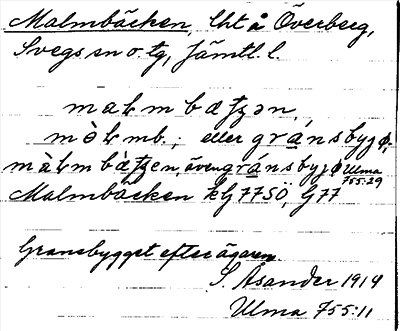 Malmbäcken, lht å Överberg,
Svegs sn o. tg, Jämtl. l.
malmbæʈʂən
mòlmb.; eller gránsbygø;
màlmbæ̀ʈʂen, även gránsbygø Ulma
755:29
Malmbäcken EG 77 SÖ, G77
Gransbygget efter ägaren.
S. Asander 1914
Ulma 755:11